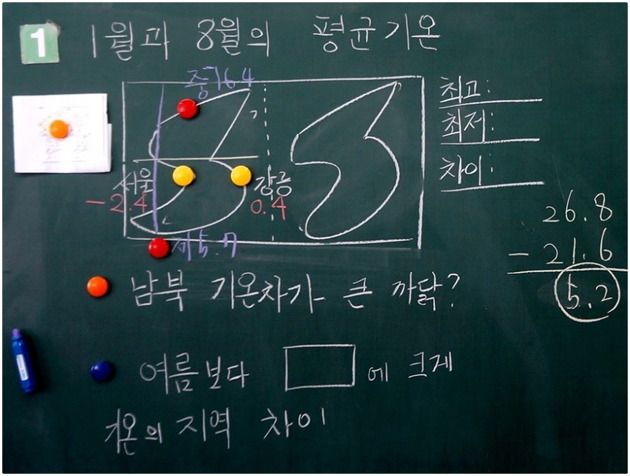 1 1월과 8월의 평균기온
중 16.4
최고:
최저:
차이:
서울
강릉
-2.4
0.4
26.8
- 21.6
5.2
서 5.7
남북 기온차가 큰 까닭?
여름보다 에 크게
기온의 지역 차이